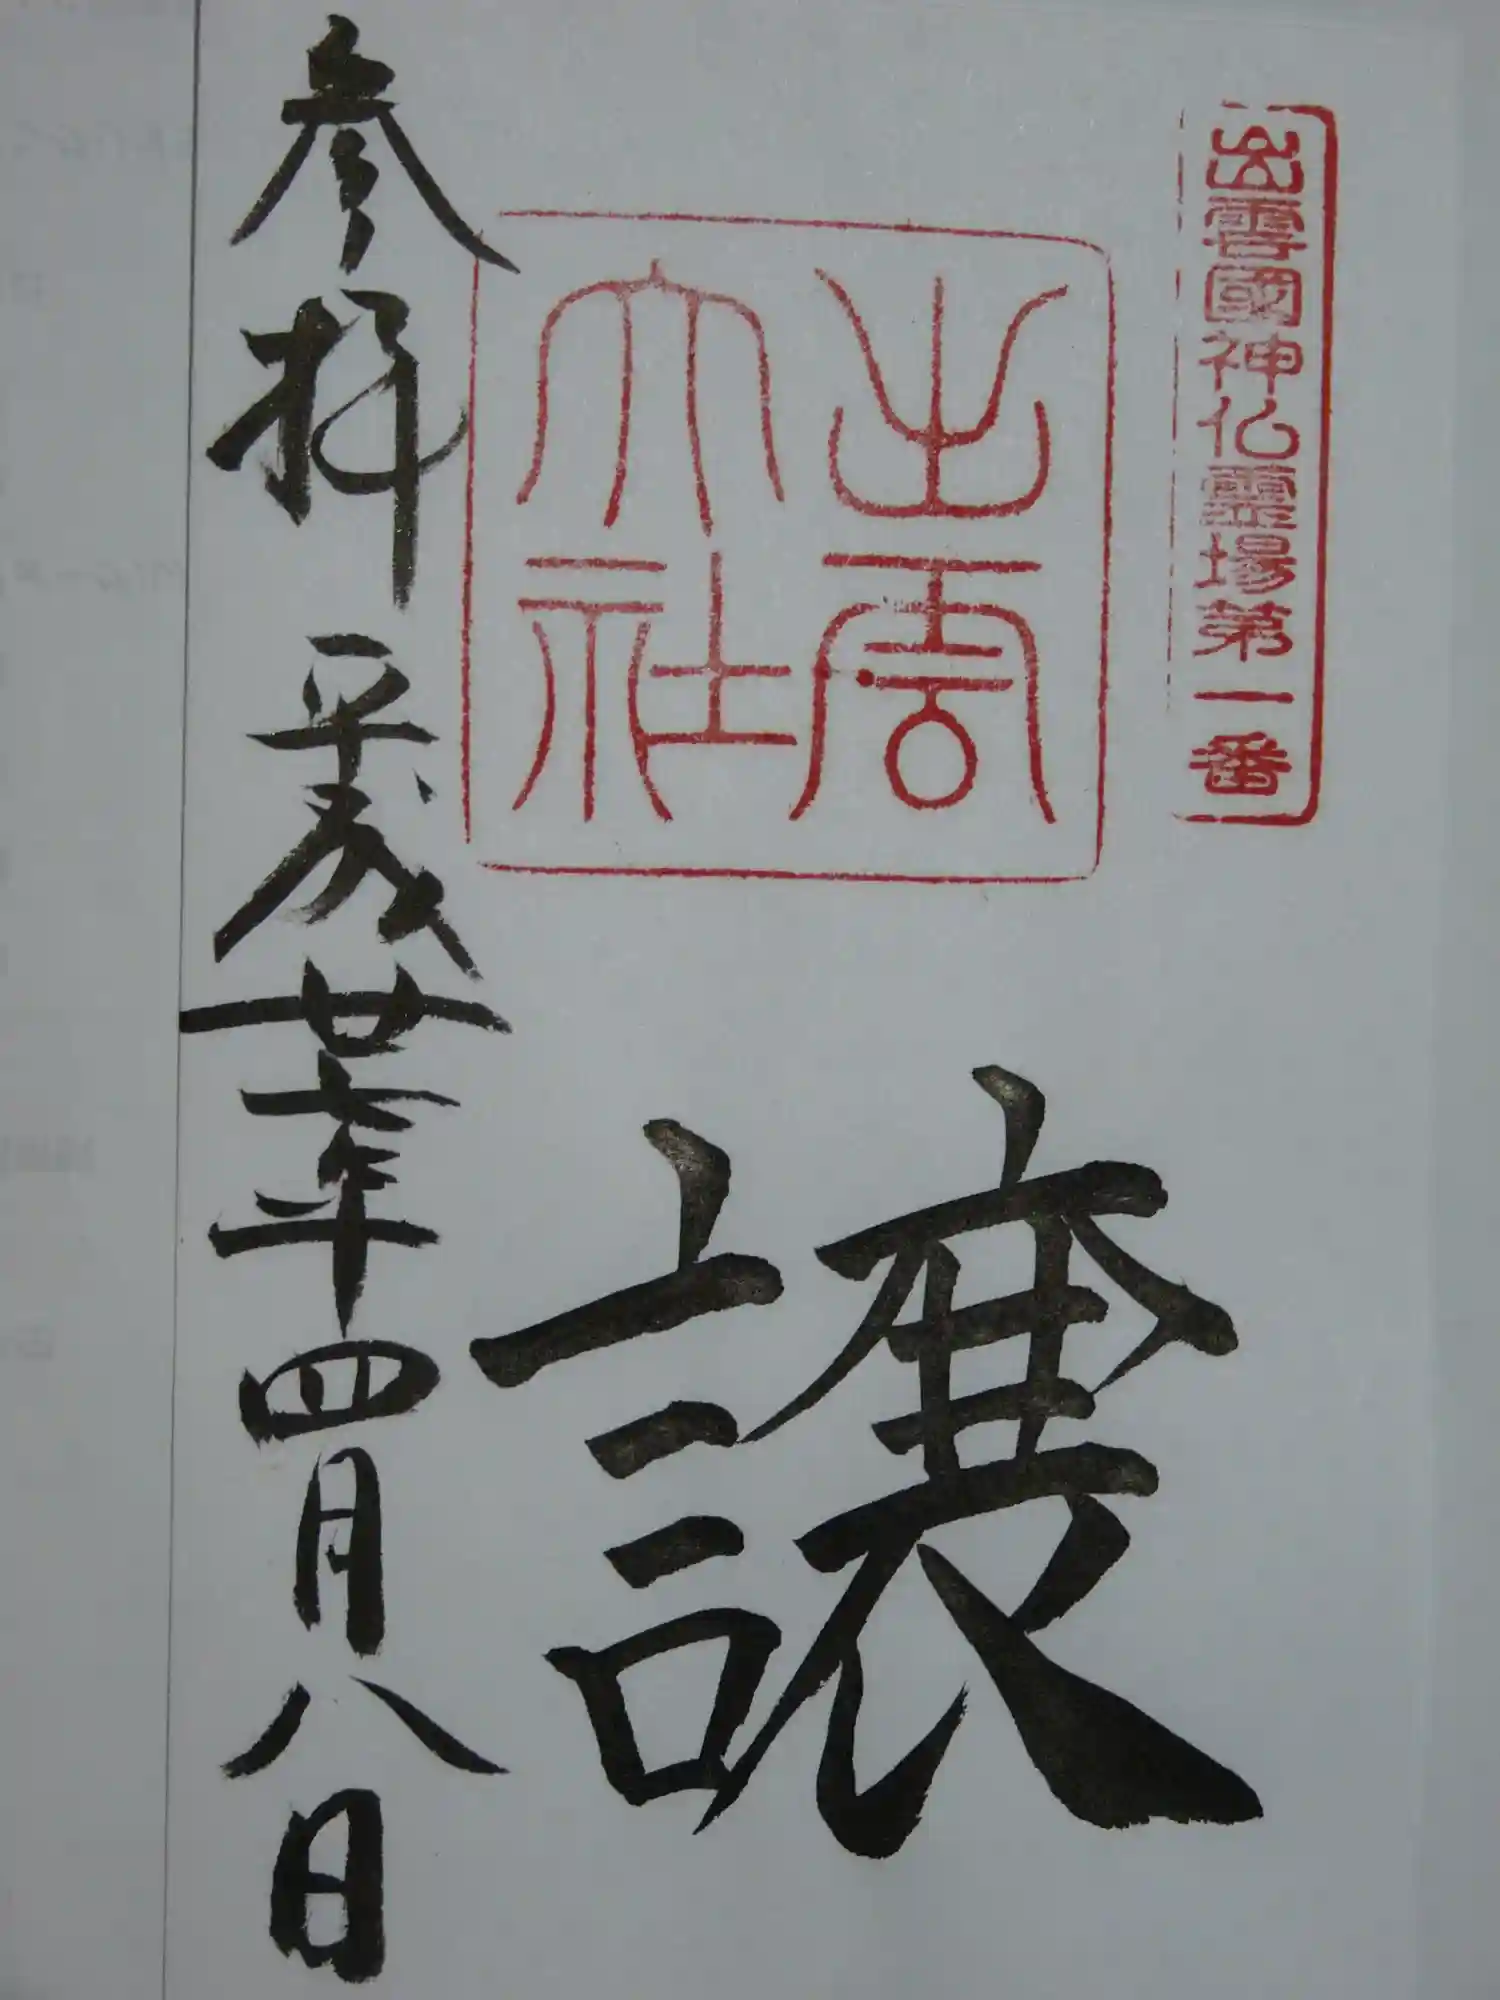 出雲國神仏霊場第一番
出雲
大社
譲
参拝 平成廿七年四月八日